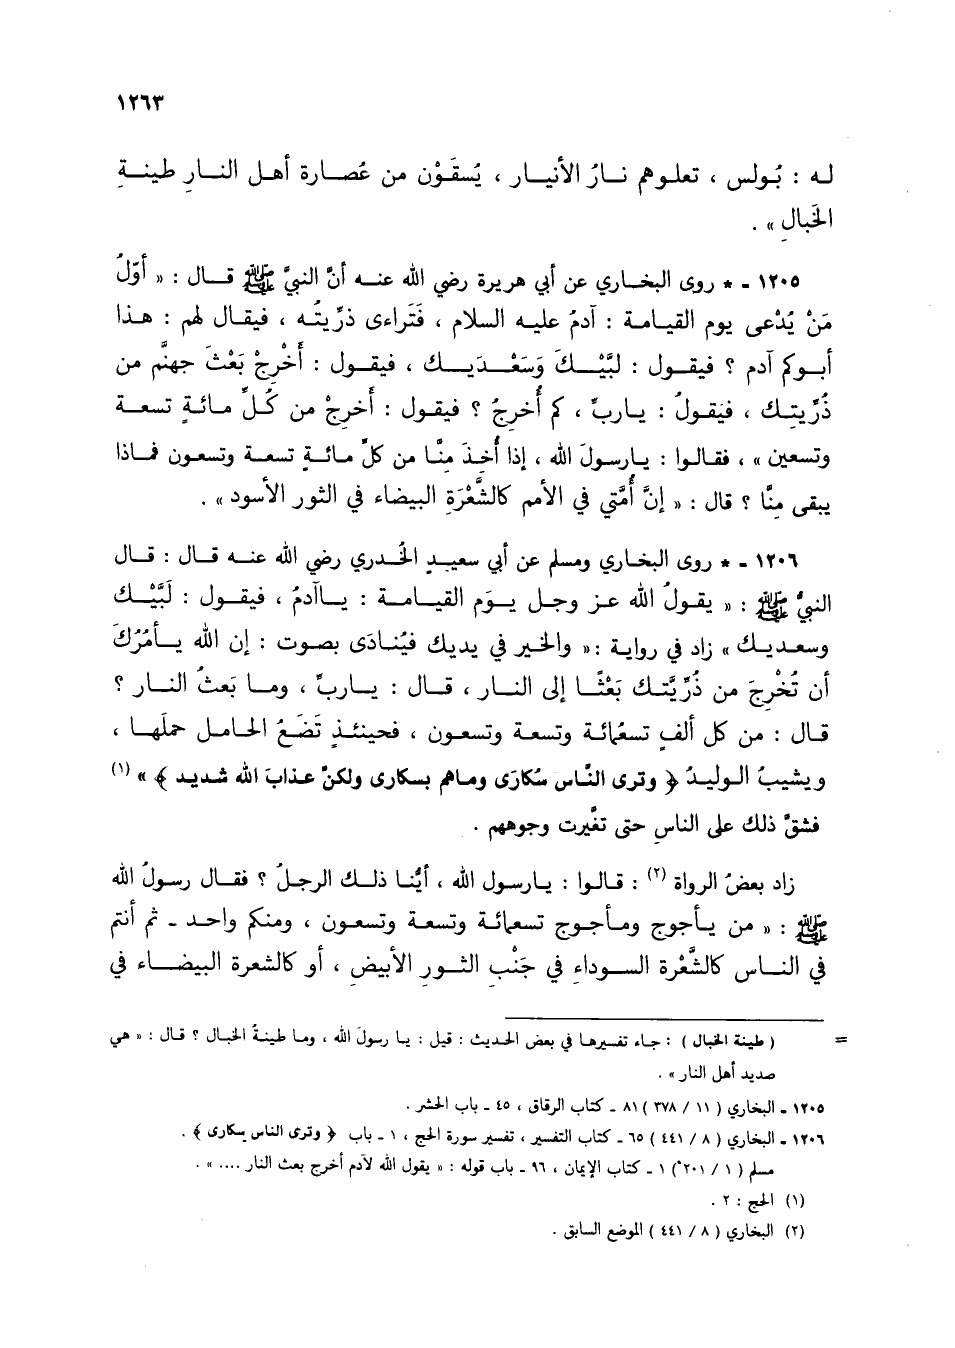 ١٢٦٣
له : بُولس ، تعلوهم نارُ الأنيار ، يُسقَوْن من عُصارة أهل النارِ طينةِ
الخَبالِ » .
١٢٠٥ - * روى البخاري عن أبي هريرة رضي الله عنه أنَّ النبيَّ ﷺ قال : « أوّلُ
مَنْ يُدْعى يوم القيامة : آدمُ عليه السلام ، فَتَراءى ذرِّيتُه ، فيقال لهم : هذا
أبوكم آدم ؟ فيقول : لبَّيْكَ وَسَعْدَيك ، فيقول : أَخْرِجْ بَعْثَ جهنَّم من
ذُرِّيتِك ، فيَقولُ : ياربِّ ، كم أُخرِجُ ؟ فيقول : أَخرِجْ من كُلِّ مائةٍ تسعة
وتسعين » ، فقالوا : يارسولَ الله ، إذا أُخِذَ مِنَّا من كلِّ مائةٍ تسعة وتسعون فماذا
يبقى مِنَّا ؟ قال : « إنَّ أُمَّتي في الأمم كالشَّعْرَةِ البيضاء في الثور الأسود » .
١٢٠٦ - * روى البخاري ومسلم عن أبي سعيدٍ الخُدري رضي الله عنه قال : قال
النبيُّ ﷺ : « يقولُ الله عز وجل يومَ القيامة : ياآدمُ ، فيقول : لَبَّيْك
وسعديك » زاد في رواية :« والخير في يديك فيُنادَى بصوت : إن الله يأمُرُكَ
أن تُخْرِجَ من ذُرِّيَّتك بَعْثًا إلى النار ، قال : ياربِّ ، وما بَعثُ النار ؟
قال : من كل ألفٍ تسعُمائة وتسعة وتسعون ، فحينئذٍ تَضَعُ الحامل حملَها ،
ويشيبُ الوليدُ ﴿ وترى النَّاس سُكارَى وماهم بسكارى ولكنَّ عذابَ الله شديد ﴾ » (١)
فشقَّ ذلك على الناسِ حتى تغَّيرت وجوههم .
زاد بعضُ الرواة (٢) : قالوا : يارسول الله ، أيُّنا ذلك الرجلُ ؟ فقال رسولُ الله
ﷺ : « من يأجوج ومأجوج تسعمائة وتسعة وتسعون ، ومنكم واحد - ثم أنتم
في الناس كالشَّعْرة السوداءِ في جَنْبِ الثورِ الأبيضِ ، أو كالشعرة البيضاء في
= ( طينة الخبال ) : جاء تفسيرها في بعض الحديث : قيل : يا رسولَ الله ، وما طينةُ الخبال ؟ قال : « هي
صديد أهل النار » .
١٢٠٥ - البخاري ( ١١ / ٣٧٨ ) ٨١ - كتاب الرقاق ، ٤٥ - باب الحشر .
١٢٠٦ - البخاري ( ٨ / ٤٤١ ) ٦٥ - كتاب التفسير ، تفسير سورة الحج ، ١ - باب ﴿ وترى الناس سكارى ﴾ .
مسلم ( ١ / ٢٠١ ) ١ - كتاب الإيمان ، ٩٦ - باب قوله : « يقول الله لآدم أخرج بعث النار .... » .
(١) الحج : ٢ .
(٢) البخاري ( ٨ / ٤٤١ ) الموضع السابق .